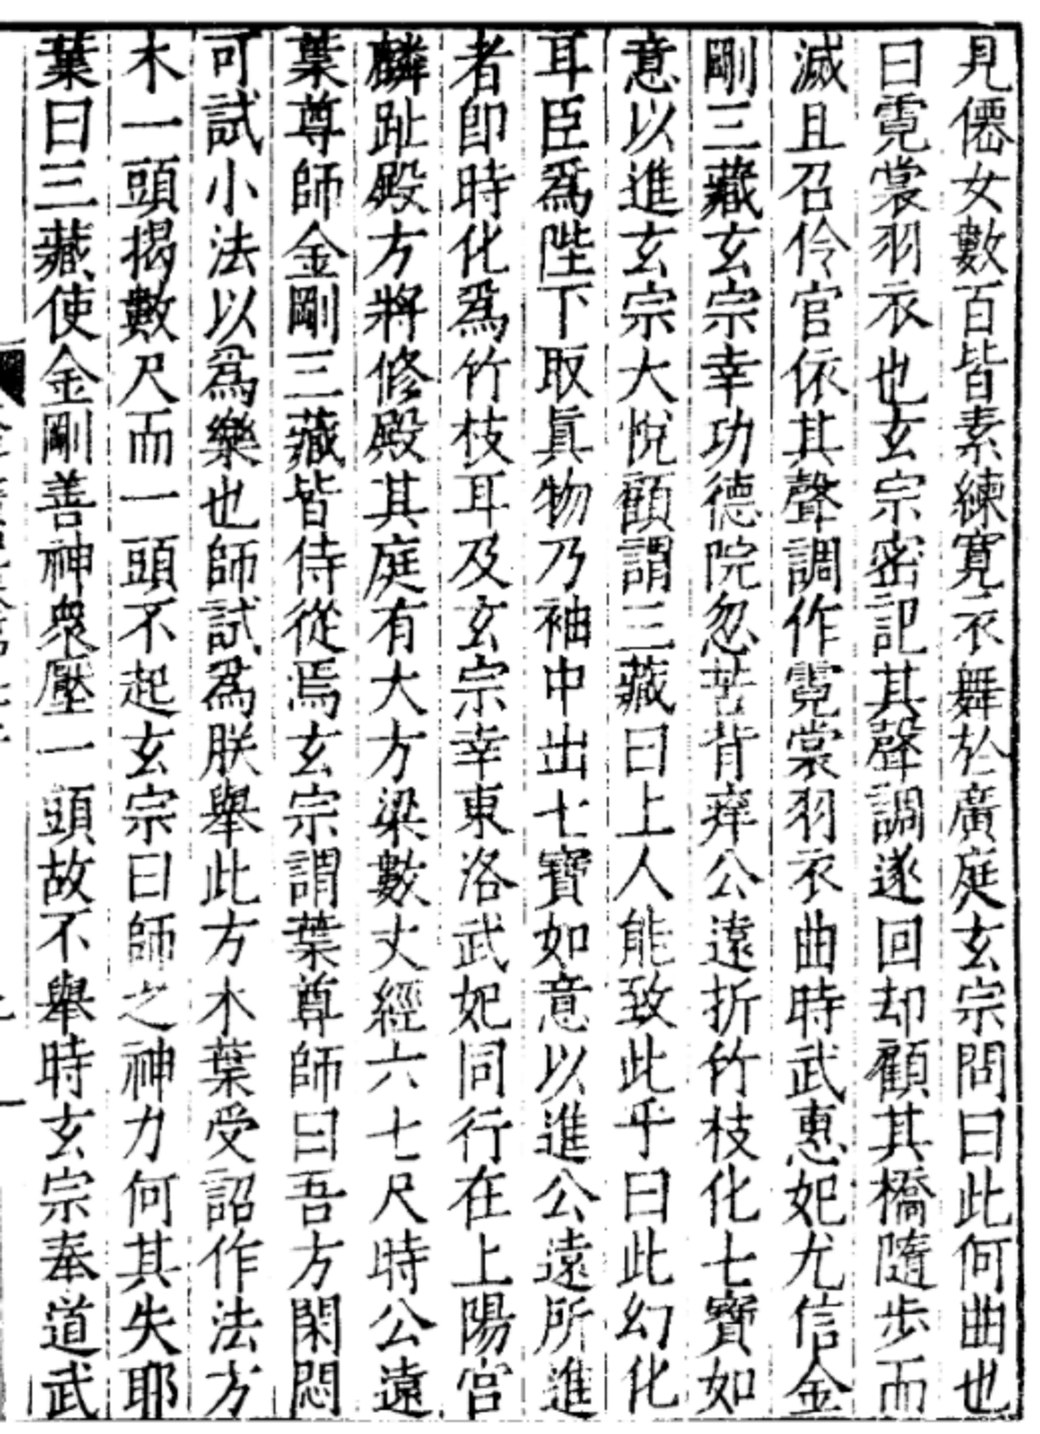 見僊女數百皆素練寛衣舞於廣庭玄宗問曰此何曲也
曰霓裳羽衣也玄宗密記其聲調遂回却顧其橋隨歩而
滅且召伶官依其聲調作霓裳羽衣曲時武惠妃尤信金
剛三藏玄宗幸功德院忽苦背痒公遠折竹枝化七寶如
意以進玄宗大悅顧謂三藏曰上人能致此乎曰此幻化
耳臣爲陛下取眞物乃袖中出七寶如意以進公遠所進
者即時化爲竹枝耳及玄宗幸東洛武妃同行在上陽宮
麟趾殿方將修殿其庭有大方梁數丈經六七尺時公遠
葉尊師金剛三藏皆侍從焉玄宗謂葉尊師曰吾方閑悶
可試小法以爲樂也師試爲朕舉此方木葉受詔作法方
木一頭揭數尺而一頭不起玄宗曰師之神力何其失耶
葉曰三藏使金剛善神衆壓一頭故不舉時玄宗奉道武